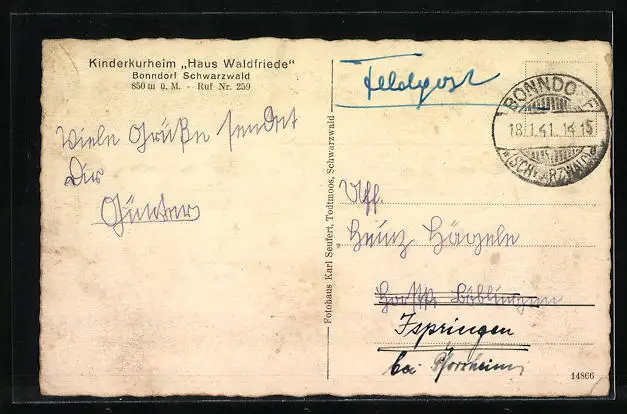 Kinderkurheim „Haus Waldfriede"
Bonndorf Schwarzwald
850 m ü. M. - Ruf Nr. 259
Viele Grüße sendet
Dir
Günter
Fotohaus Karl Seufert, Todtmoos, Schwarzwald
Feldpost
BONNDORF
18.1.41.14-15
(SCHWARZWALD)
Uffz.
Heinz Hägele
Böblingen
Ispringen
bei Pforzheim
14866